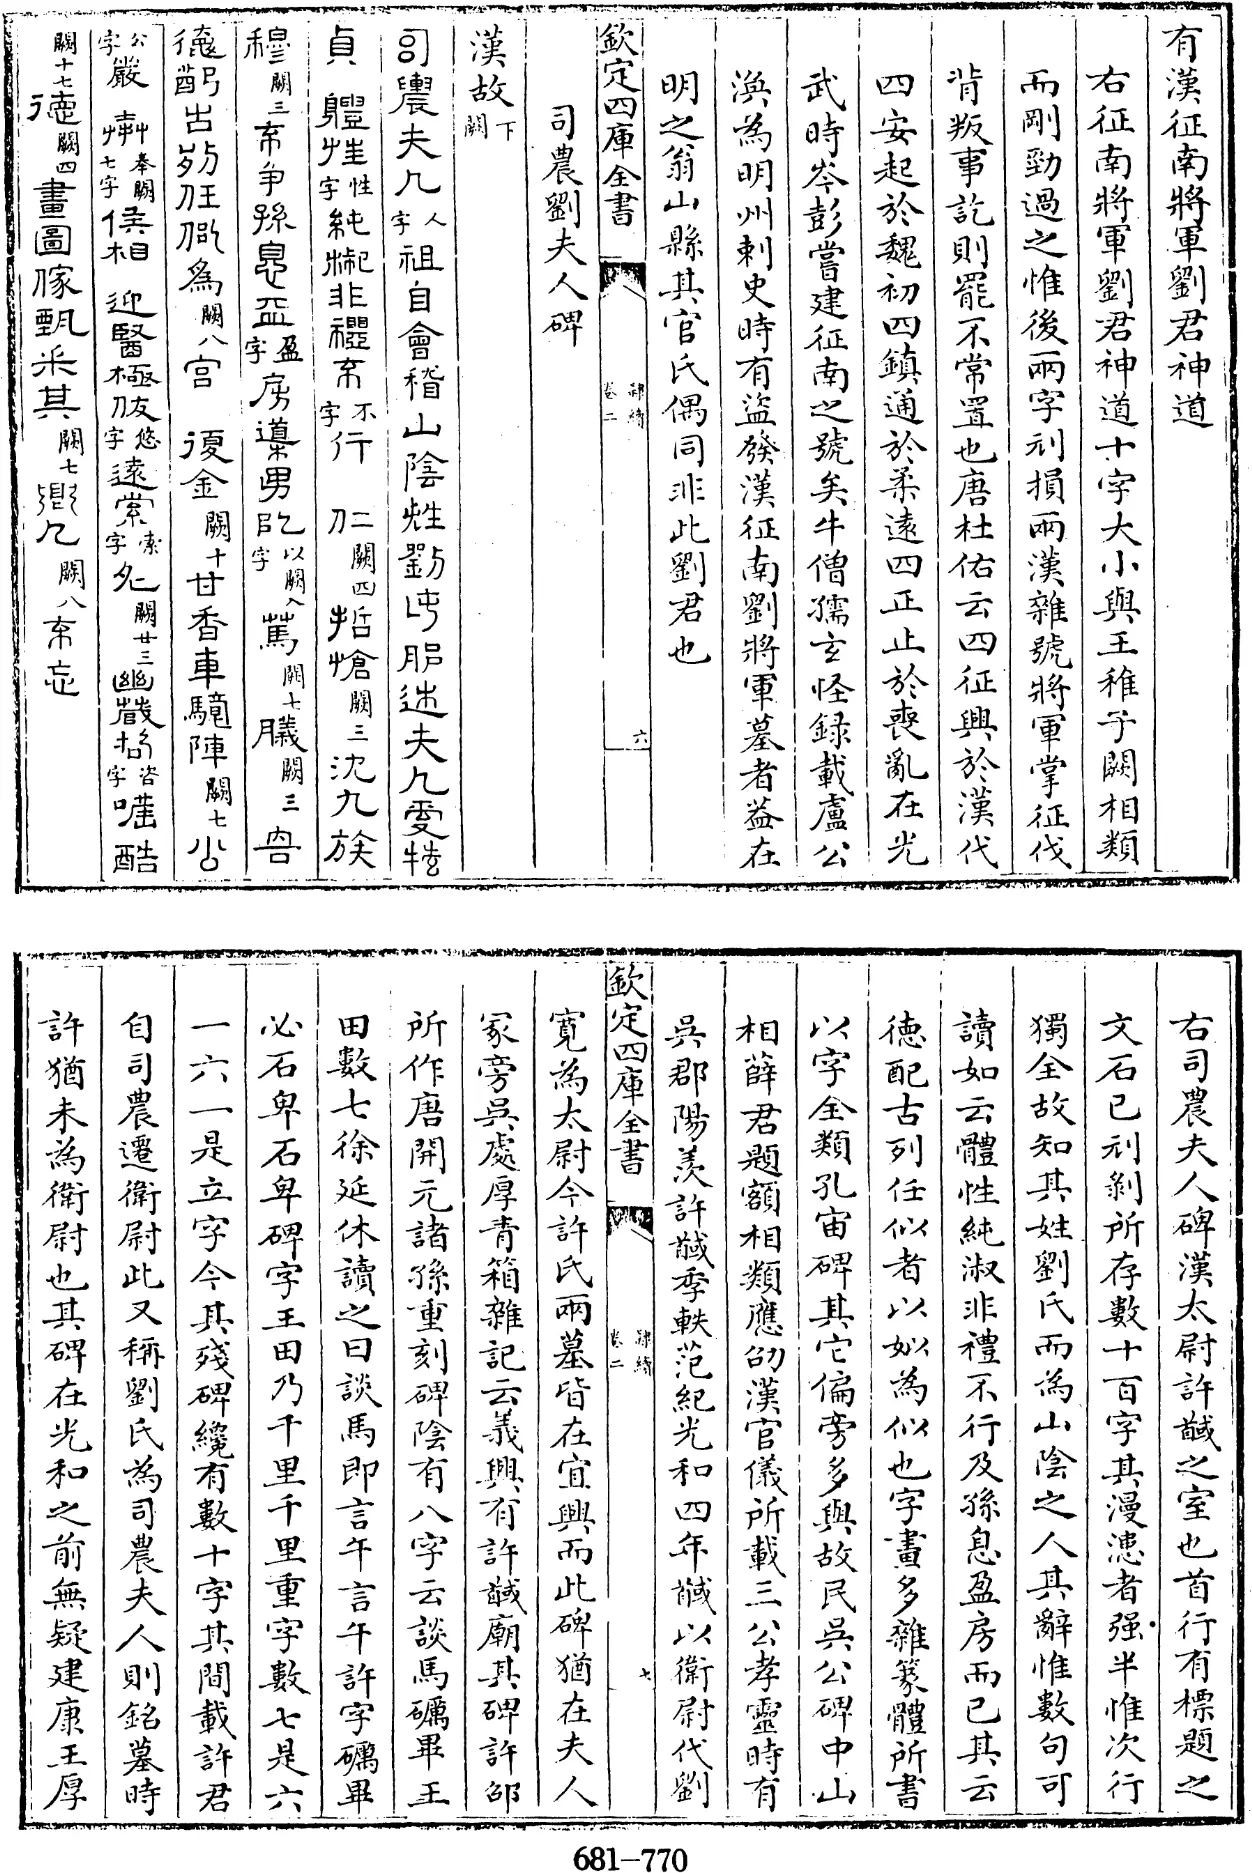 有漢征南將軍劉君神道
右征南將軍劉君神道十字大小與王稚子闕相類
而剛勁過之惟後兩字刓損兩漢雜號將軍掌征伐
背叛事訖則罷不常置也唐杜佑云四征興於漢代
四安起於魏初四鎮通於柔遠四正止於喪亂在光
武時岑彭嘗建征南之號矣牛僧孺玄怪録載盧公
渙為明州刺史時有盜發漢征南劉將軍墓者益在
明之翁山縣其官氏偶同非此劉君也
欽定四庫全書 隸續 卷二 六
司農劉夫人碑
漢故闕下
司農夫人字祖自會稽山陰姓劉氏 夫人受性
貞 體性性字純淑非禮不字行 仁闕四哲闕三沈九族
穆闕三 爭孫息盈盈字房 男以字闕八篤闕七 闕三
德配古列任似爲闕八宫 復金闕十甘香車騎陣闕七公
公字嚴 奉闕七字侯相 迎醫極 悠字遠索索字 闕廿三幽 咨字嗟酷
闕十七德闕四畫圖 采其闕七 闕八 忘
右司農夫人碑漢太尉許馘之室也首行有標題之
文石已刓剝所存數十百字其漫漶者强半惟次行
獨全故知其姓劉氏而為山陰之人其辭惟數句可
讀如云體性純淑非禮不行及孫息盈房而已其云
徳配古列任似者以姒為似也字畫多雜篆體所書
以字全類孔宙碑其它偏旁多與故民吳公碑中山
相薛君題額相類應劭漢官儀所載三公孝靈時有
吳郡陽羨許馘季軼范紀光和四年馘以衛尉代劉
欽定四庫全書 隸續 卷二 七
寬為太尉今許氏兩墓皆在宜興而此碑猶在夫人
冢旁吳處厚青箱雜記云義興有許馘廟其碑許邵
所作唐開元諸孫重刻碑陰有八字云談馬礪畢王
田數七徐延休讀之曰談馬即言午言午許字礪畢
必石卑石卑碑字王田乃千里千里重字數七是六
一六一是立字今其殘碑纔有數十字其間載許君
自司農遷衛尉此又稱劉氏為司農夫人則銘墓時
許猶未為衛尉也其碑在光和之前無疑建康王厚
681-770